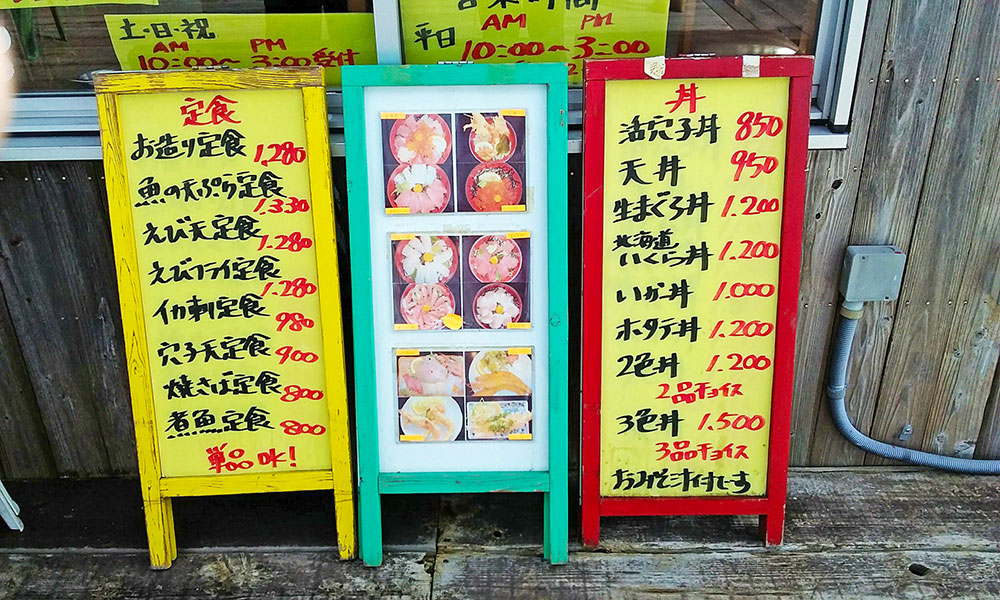 土・日・祝
AM PM
10:00~3:00受付
営業時間
平日 AM PM
10:00~3:00
定食
お造り定食 1,280
魚の天ぷら定食 1,330
えび天定食 1,280
えびフライ定食 1,280
イカ刺定食 980
穴子天定食 900
焼さば定食 800
煮魚定食 800
単品OK!
丼
活穴子丼 850
天丼 950
生まぐろ丼 1,200
北海道
いくら丼 1,200
いか丼 1,000
ホタテ丼 1,200
2色丼 1,200
2品チョイス
3色丼 1,500
3品チョイス
おみそ汁付でーす